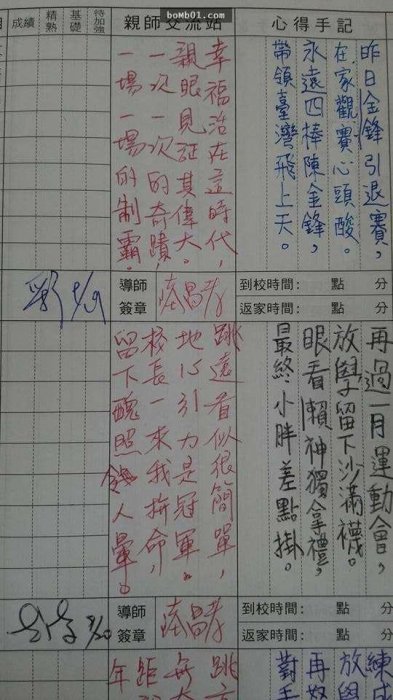 boMb01.com
成績 精熟 基礎 待加強 親師交流站 心得手記
昨日金鋒引退賽，
在家觀賽心頭酸。
永遠四棒陳金鋒，
帶領臺灣飛上天。
幸福活在這時代，
親眼見証其偉大。
一次一次的奇蹟，
一場一場的制霸。
導師簽章
到校時間： 點 分
返家時間： 點 分
再過一月運動會，
放學留下沙滿襪。
眼看賴神獨拿禮，
最終小胖差點掛。
跳遠看似很簡單，
地心引力是冠軍。
校長一來我拚命，
留下醜照餵人暈。
導師簽章
到校時間： 點 分
返家時間： 點 分